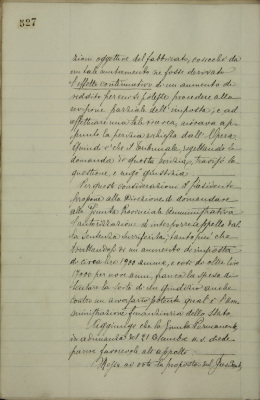 527
zioni oggettive del fabbricato, cosicchè da
un tale mutamento ne fosse derivato
l'effetto continuativo di un aumento di
reddito per cui si potesse procedere alla
revisione parziale dell'imposta; e ad
effettuare una tale ricerca, mirava ap-
punto la perizia richiesta dall'Opera.
Quindi è che il Tribunale, respingendo la
domanda di questa perizia, travisò la
questione, e negò giustizia.
Per queste considerazioni il Presidente
propone alla Direzione di domandare
alla Giunta Provinciale Amministrativa
l'autorizzazione ad interporre appello dal-
la sentenza surriferita, tanto più che
trattandosi di un aumento di imposta
di circa lire 1900 annue, e cioè di oltre lire
17000 per nove anni, franca la spesa di
tentare la sorte di un giudizio anche
contro un avversario potente qual è l'am-
ministrazione finanziaria dello Stato.
Soggiunge che la Giunta Permanente
in adunanza del 21 Ottobre a. c. dette
parere favorevole all'appello.
Messa ai voti la proposta del Presidente